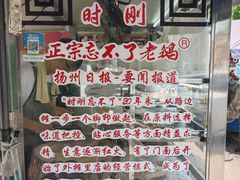 时刚
正宗忘不了老鹅®
扬州日报-要闻报道
"时刚忘不了"22年来,从路边
摊一步一个脚印做起,在原料选择
味道把控、贴心服务等方面精益求
精,生意逐渐红火,有了门面后开
始了外摊里店的经营模式,成为了